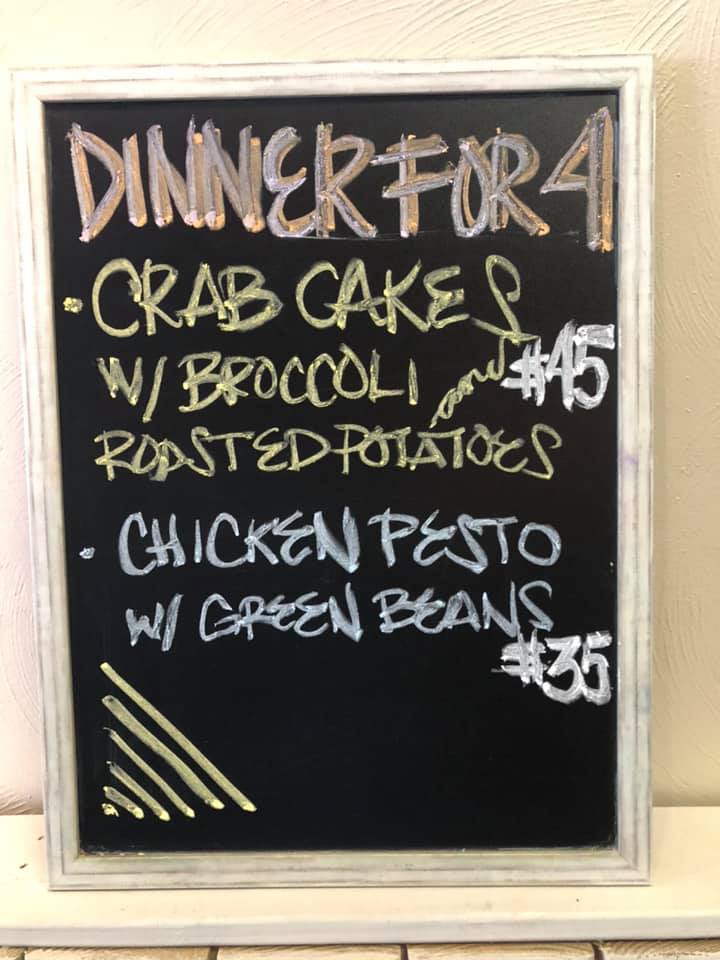 DINNER FOR 4
• CRAB CAKES
W/ BROCCOLI and #45
ROASTED POTATOES
• CHICKEN PESTO
W/ GREEN BEANS
#35